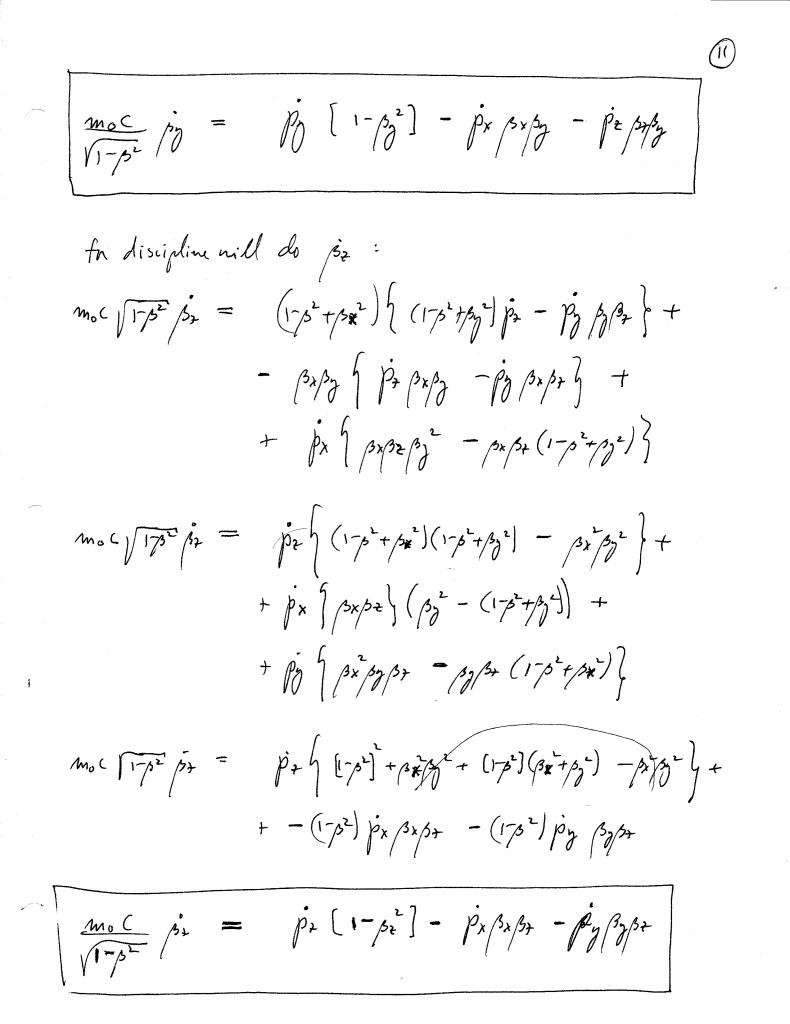 11
m₀c/√(1-β²) β̇y = ṗy [1-βy²] - ṗx βxβy - ṗz βzβy
for discipline will do β̇z :
m₀c √(1-β²) β̇z = (1-β²+βx²){(1-β²+βy²)ṗz - ṗy βyβz} +
- βxβy {ṗz βxβy - ṗy βxβz} +
+ ṗx {βxβzβy² - βxβz(1-β²+βy²)}
m₀c √(1-β²) β̇z = ṗz {(1-β²+βx²)(1-β²+βy²) - βx²βy²} +
+ ṗx {βxβz}(βy² - (1-β²+βy²)) +
+ ṗy {βx²βyβz - βyβz(1-β²+βx²)}
m₀c √(1-β²) β̇z = ṗz {[1-β²]² + βx²βy² + [1-β²](βx²+βy²) - βx²βy²} +
+ -(1-β²) ṗx βxβz - (1-β²) ṗy βyβz
m₀c/√(1-β²) β̇z = ṗz [1-βz²] - ṗx βxβz - ṗy βyβz